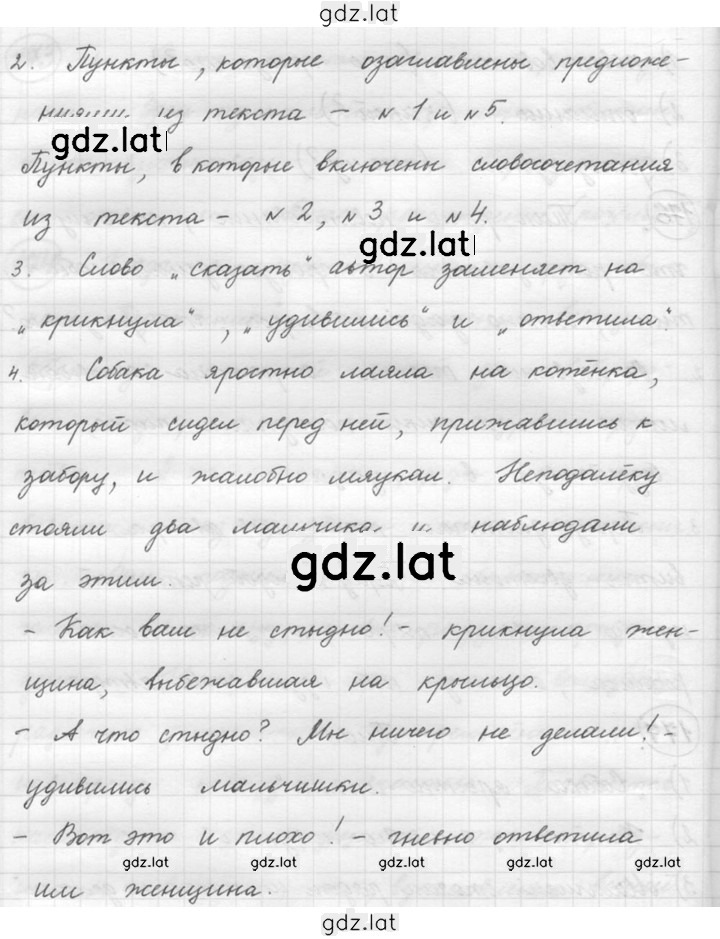 gdz.lat
2. Пункты, которые озаглавлены предложе-
ниями из текста – №1 и №5.
gdz.lat
Пункты, в которые включены словосочетания
из текста – №2, №3 и №4.
gdz.lat
3. Слово „сказать“ автор заменяет на
„крикнула“, „удивились“ и „ответила“
4. Собака яростно лаяла на котёнка,
который сидел перед ней, прижавшись к
забору, и жалобно мяукал. Неподалёку
стояли два мальчика и наблюдали
gdz.lat
за этим.
– Как вам не стыдно! – крикнула жен-
щина, выбежавшая на крыльцо.
– А что стыдно? Мы ничего не делали! –
удивились мальчишки.
– Вот это и плохо! – гневно ответила
gdz.lat gdz.lat gdz.lat gdz.lat gdz.lat
им женщина.
gdz.lat